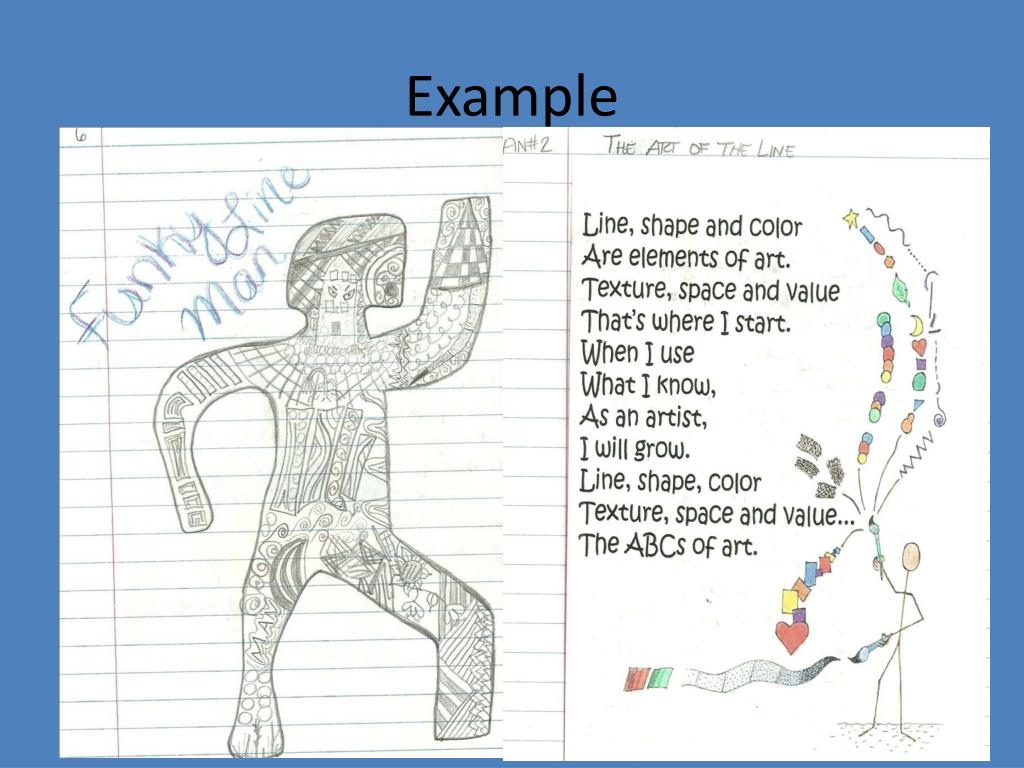 Example
6
Funky Line
Man
AN#2
THE ART OF THE LINE
Line, shape and color
Are elements of art.
Texture, space and value
That's where I start.
When I use
What I know,
As an artist,
I will grow.
Line, shape, color
Texture, space and value...
The ABCs of art.